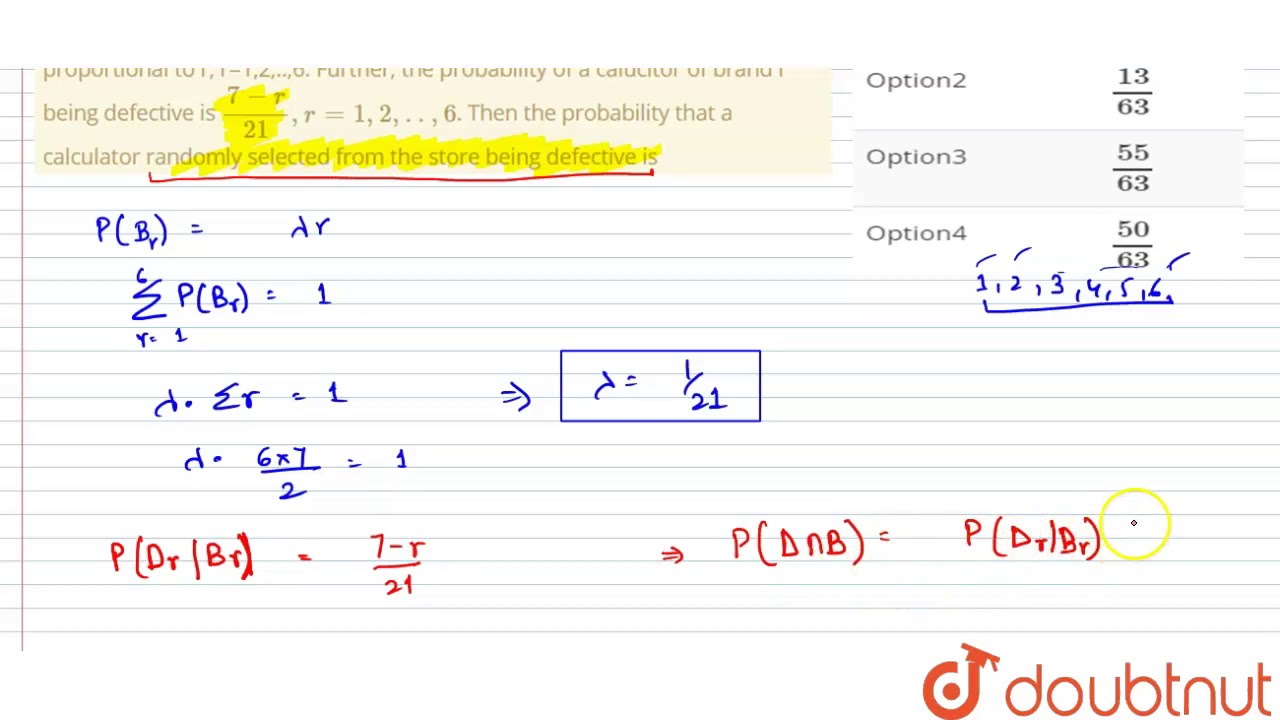 proportional to r, r=1,2,..,6. Further, the probability of a calucltor of brand r
being defective is 7 − r / 21 , r = 1, 2, . . , 6. Then the probability that a
calculator randomly selected from the store being defective is
Option2 13/63
Option3 55/63
Option4 50/63
1, 2, 3, 4, 5, 6,
P(Br) = λr
6
Σ P(Br) = 1
r= 1
λ. Σr = 1 ⇒ λ= 1/21
λ. 6×7/2 = 1
P(Dr|Br) = 7-r/21 ⇒ P(D∩B) = P(Dr|Br)
doubtnut